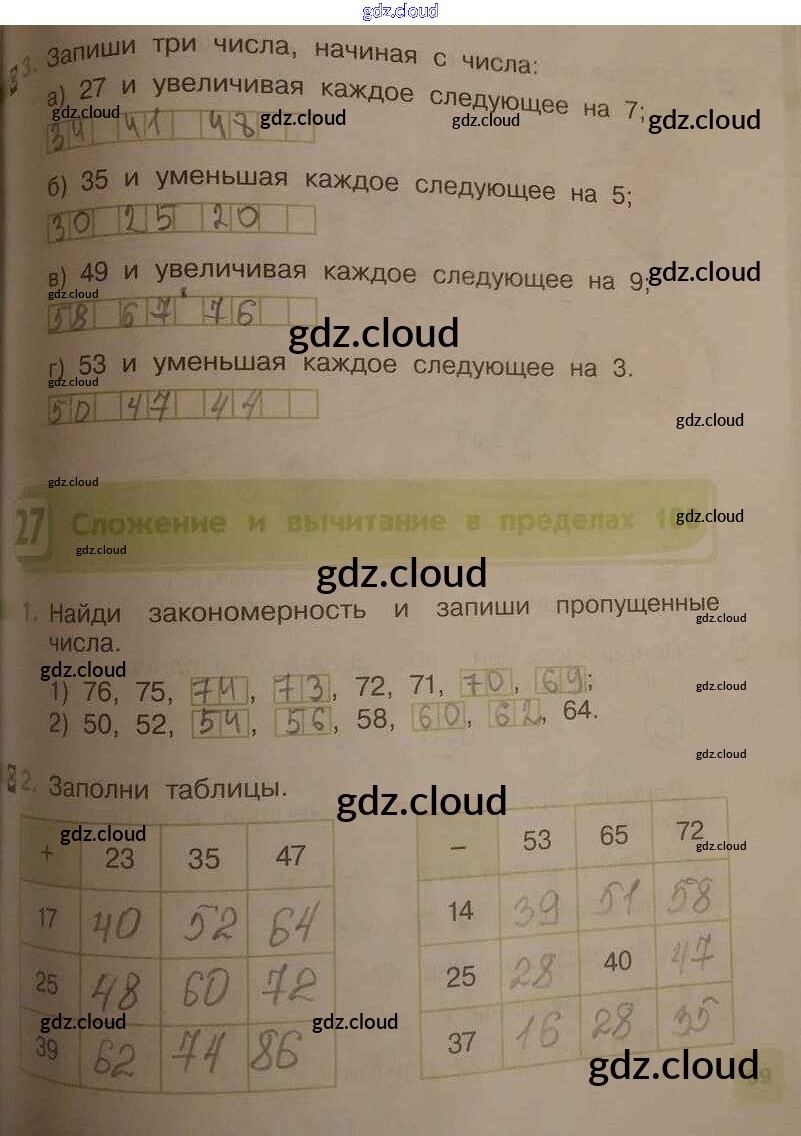 gdz.cloud
3. Запиши три числа, начиная с числа:
а) 27 и увеличивая каждое следующее на 7;
gdz.cloud gdz.cloud gdz.cloud gdz.cloud
34 41 48
б) 35 и уменьшая каждое следующее на 5;
30 25 20
в) 49 и увеличивая каждое следующее на 9;
gdz.cloud gdz.cloud
58 67 76
gdz.cloud
г) 53 и уменьшая каждое следующее на 3.
gdz.cloud
50 47 44
gdz.cloud
gdz.cloud
27 Сложение и вычитание в пределах 100
gdz.cloud
gdz.cloud
gdz.cloud
1. Найди закономерность и запиши пропущенные
числа.
gdz.cloud
gdz.cloud
1) 76, 75, 74, 73, 72, 71, 70, 69;
gdz.cloud
2) 50, 52, 54, 56, 58, 60, 62, 64.
gdz.cloud
2. Заполни таблицы.
gdz.cloud
gdz.cloud
gdz.cloud
+ 23 35 47
17 40 52 64
25 48 60 72
39 62 74 86
− 53 65 72
14 39 51 58
25 28 40 47
37 16 28 35
gdz.cloud gdz.cloud
gdz.cloud